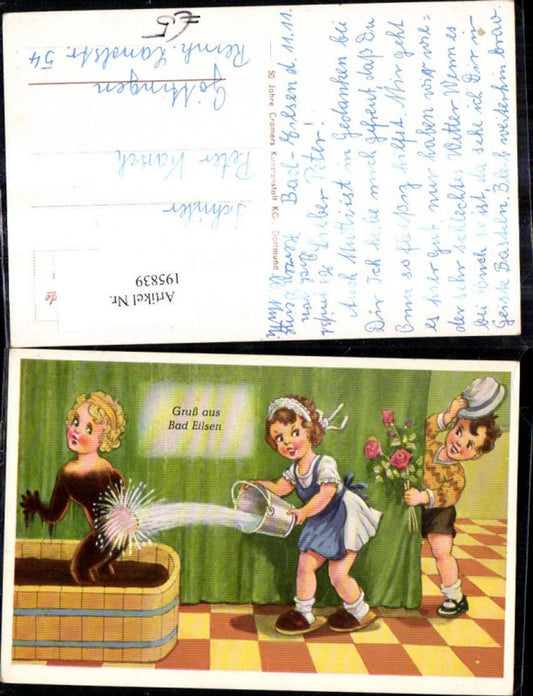 Bad-Eilsen d. 11.11.
Lieber Peter!
Auch Mutti ist in Gedanken bei
Dir. Ich habe mich gefreut, daß Du
Oma so fleißig hilfst. Mir geht
es hier gut, nur haben wir wie=
der sehr schlechtes Wetter. Wenn es
bei Euch so ist, da sehe ich Dir in
Basteln. Bleib weiterhin brav.
Mutti
50 Jahre Cramers Kunstanstalt KG., Dortmund
Schüler
Peter Karsch
Göttingen
Reinh. Landstr. 54
€5
Artikel Nr.
195839
de
Gruß aus
Bad Eilsen